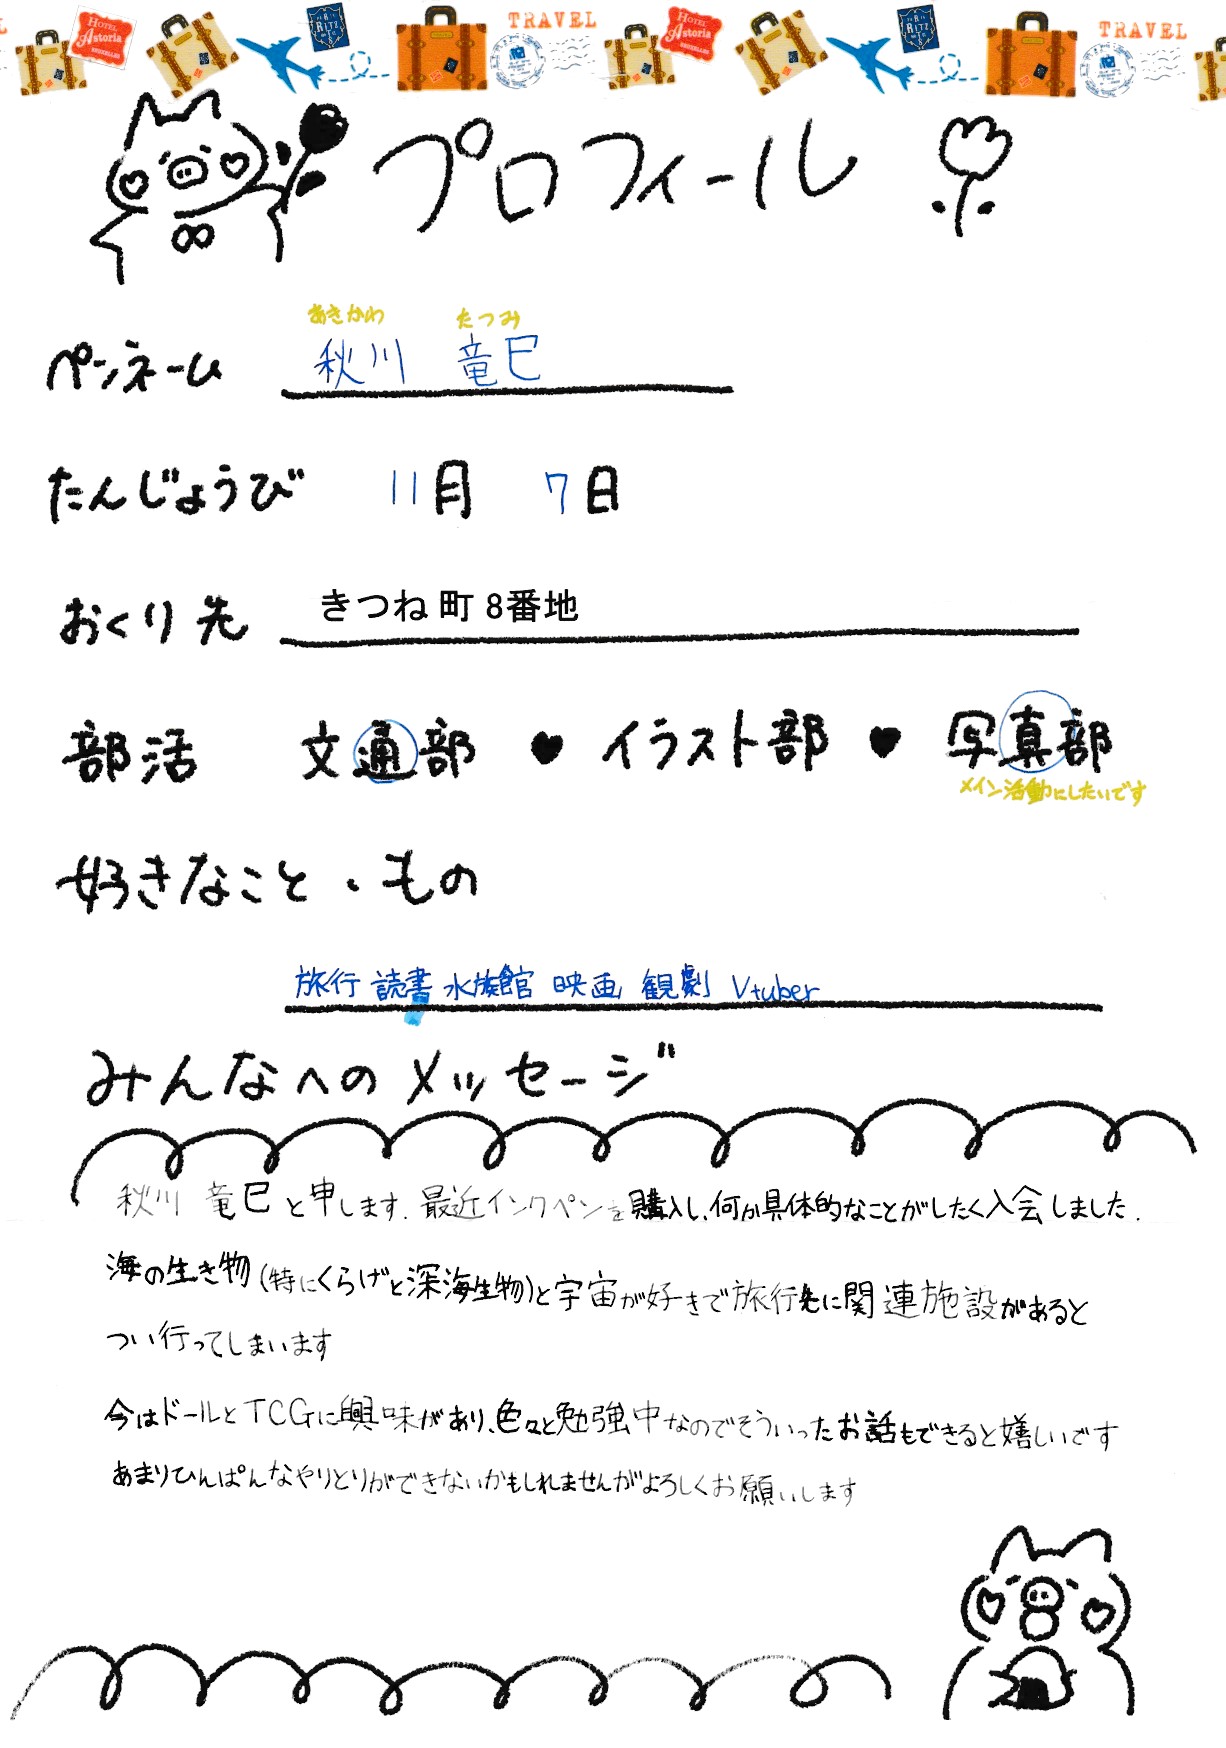 TRAVEL
HOTEL Astoria BRUXELLES
RITZ
TRAVEL
HOTEL Astoria BRUXELLES
RITZ
プロフィール
あきかわ たつみ
ペンネーム 秋川 竜巳
たんじょうび 11月 7日
おくり先 きつね町 8番地
部活 文通部 ♥ イラスト部 ♥ 写真部
メイン活動にしたいです
好きなこと・もの
旅行 読書 水族館 映画 観劇 Vtuber
みんなへのメッセージ
秋川 竜巳と申します。最近インクペンを購入し、何か具体的なことがしたく入会しました。
海の生き物(特にくらげと深海生物)と宇宙が好きで旅行先に関連施設があると
つい行ってしまいます
今はドールとTCGに興味があり、色々と勉強中なのでそういったお話もできると嬉しいです
あまりひんぱんなやりとりができないかもしれませんがよろしくお願いします